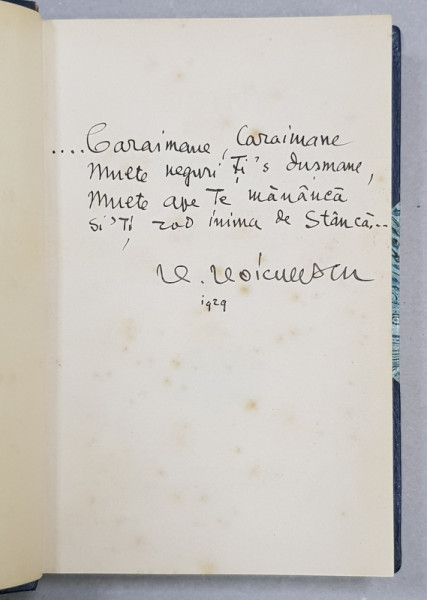 ....Caraimane, Caraimane
Multe neguri Ți's dușmane,
Multe ape Te mănâncă
Si'Ți rod inima de Stâncă...
V. Voiculescu
1929